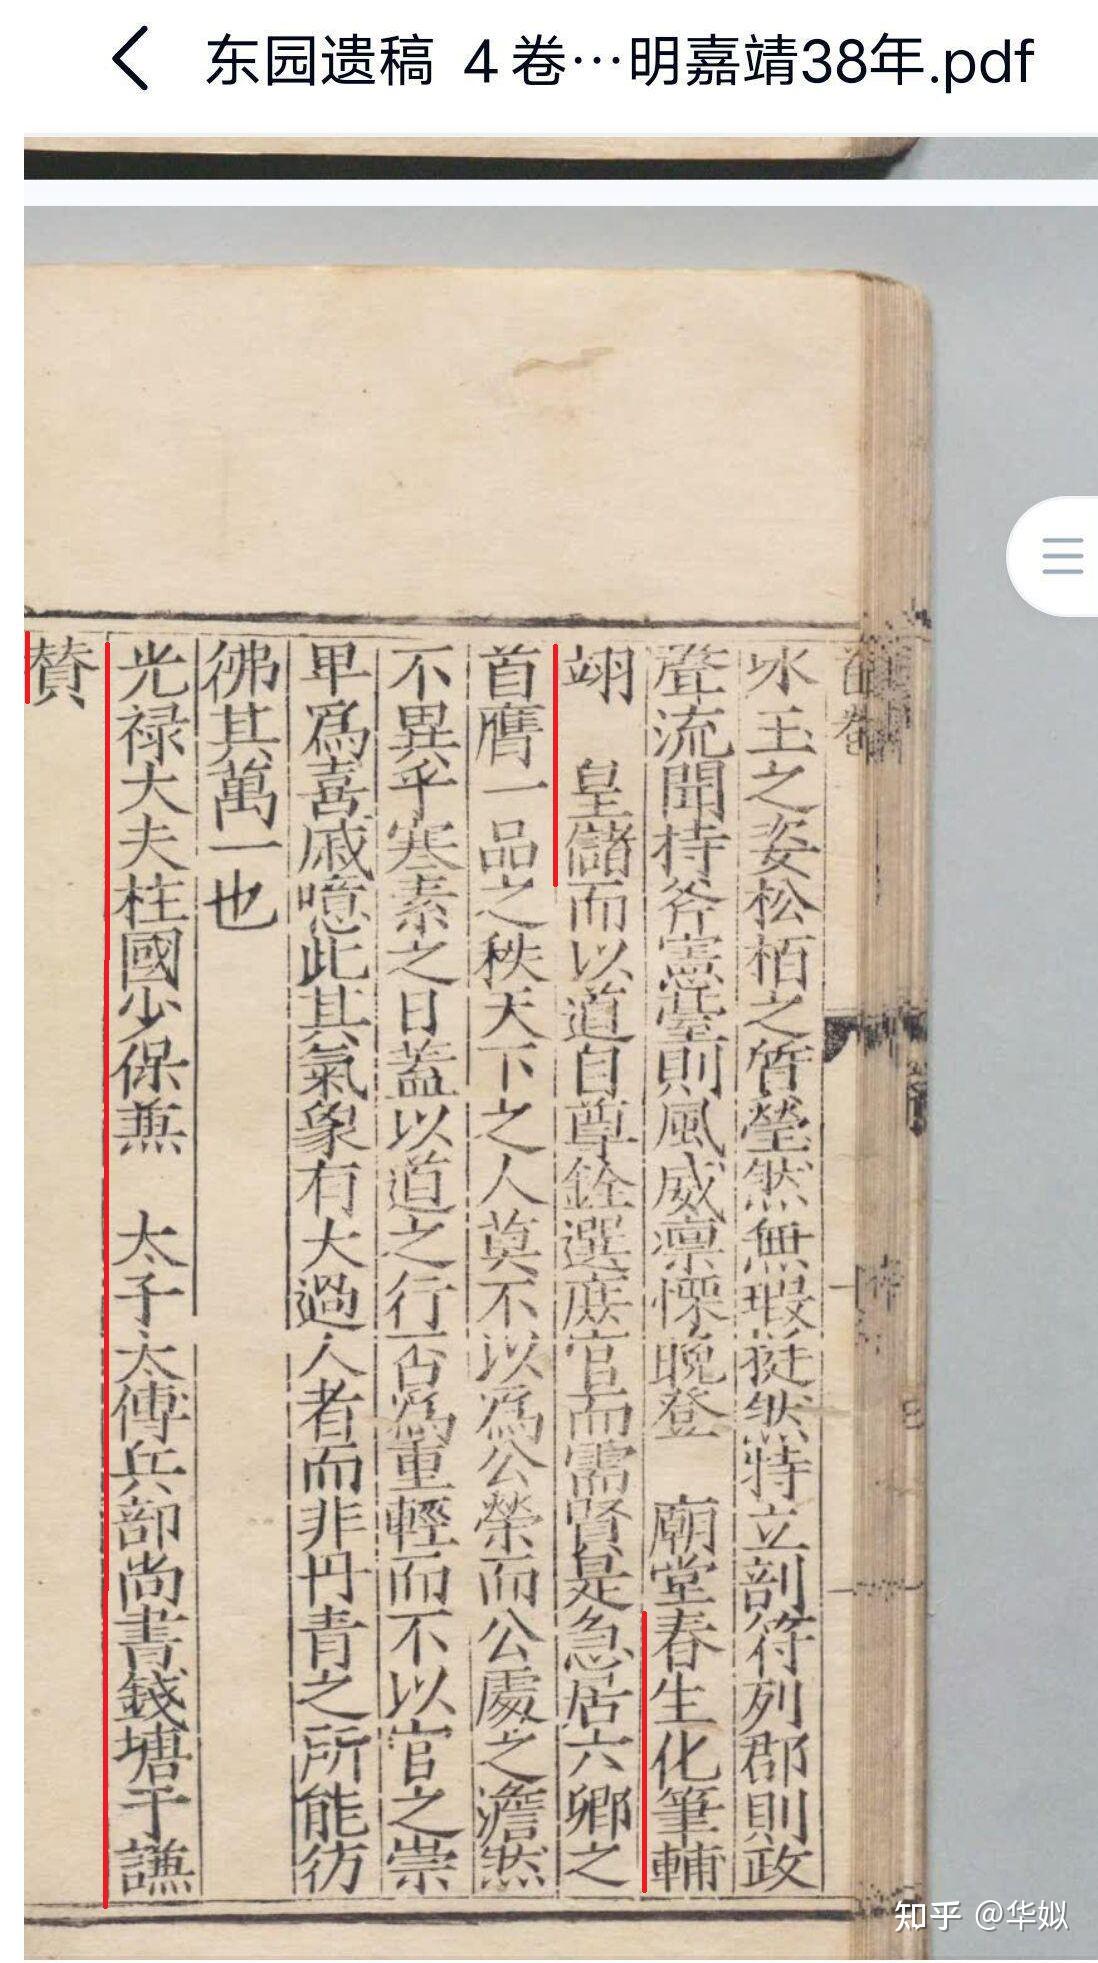 东园遗稿 4卷…明嘉靖38年.pdf
氷玉之姿松栢之質瑩然無瑕挺然特立剖符列郡則政
聲流聞持斧憲臺則風威凛慄晩登　廟堂春生化筆輔
翊　皇儲而以道自尊銓選庶官而需賢是急居六卿之
首膺一品之秩天下之人莫不以爲公榮而公處之澹然
不異乎寒素之日蓋以道之行否爲重輕而不以官之崇
卑爲喜戚噫此其氣象有大過人者而非丹青之所能彷
彿其萬一也
光禄大夫柱國少保兼　太子太傅兵部尚書錢塘于謙
贊
知乎 @华姒